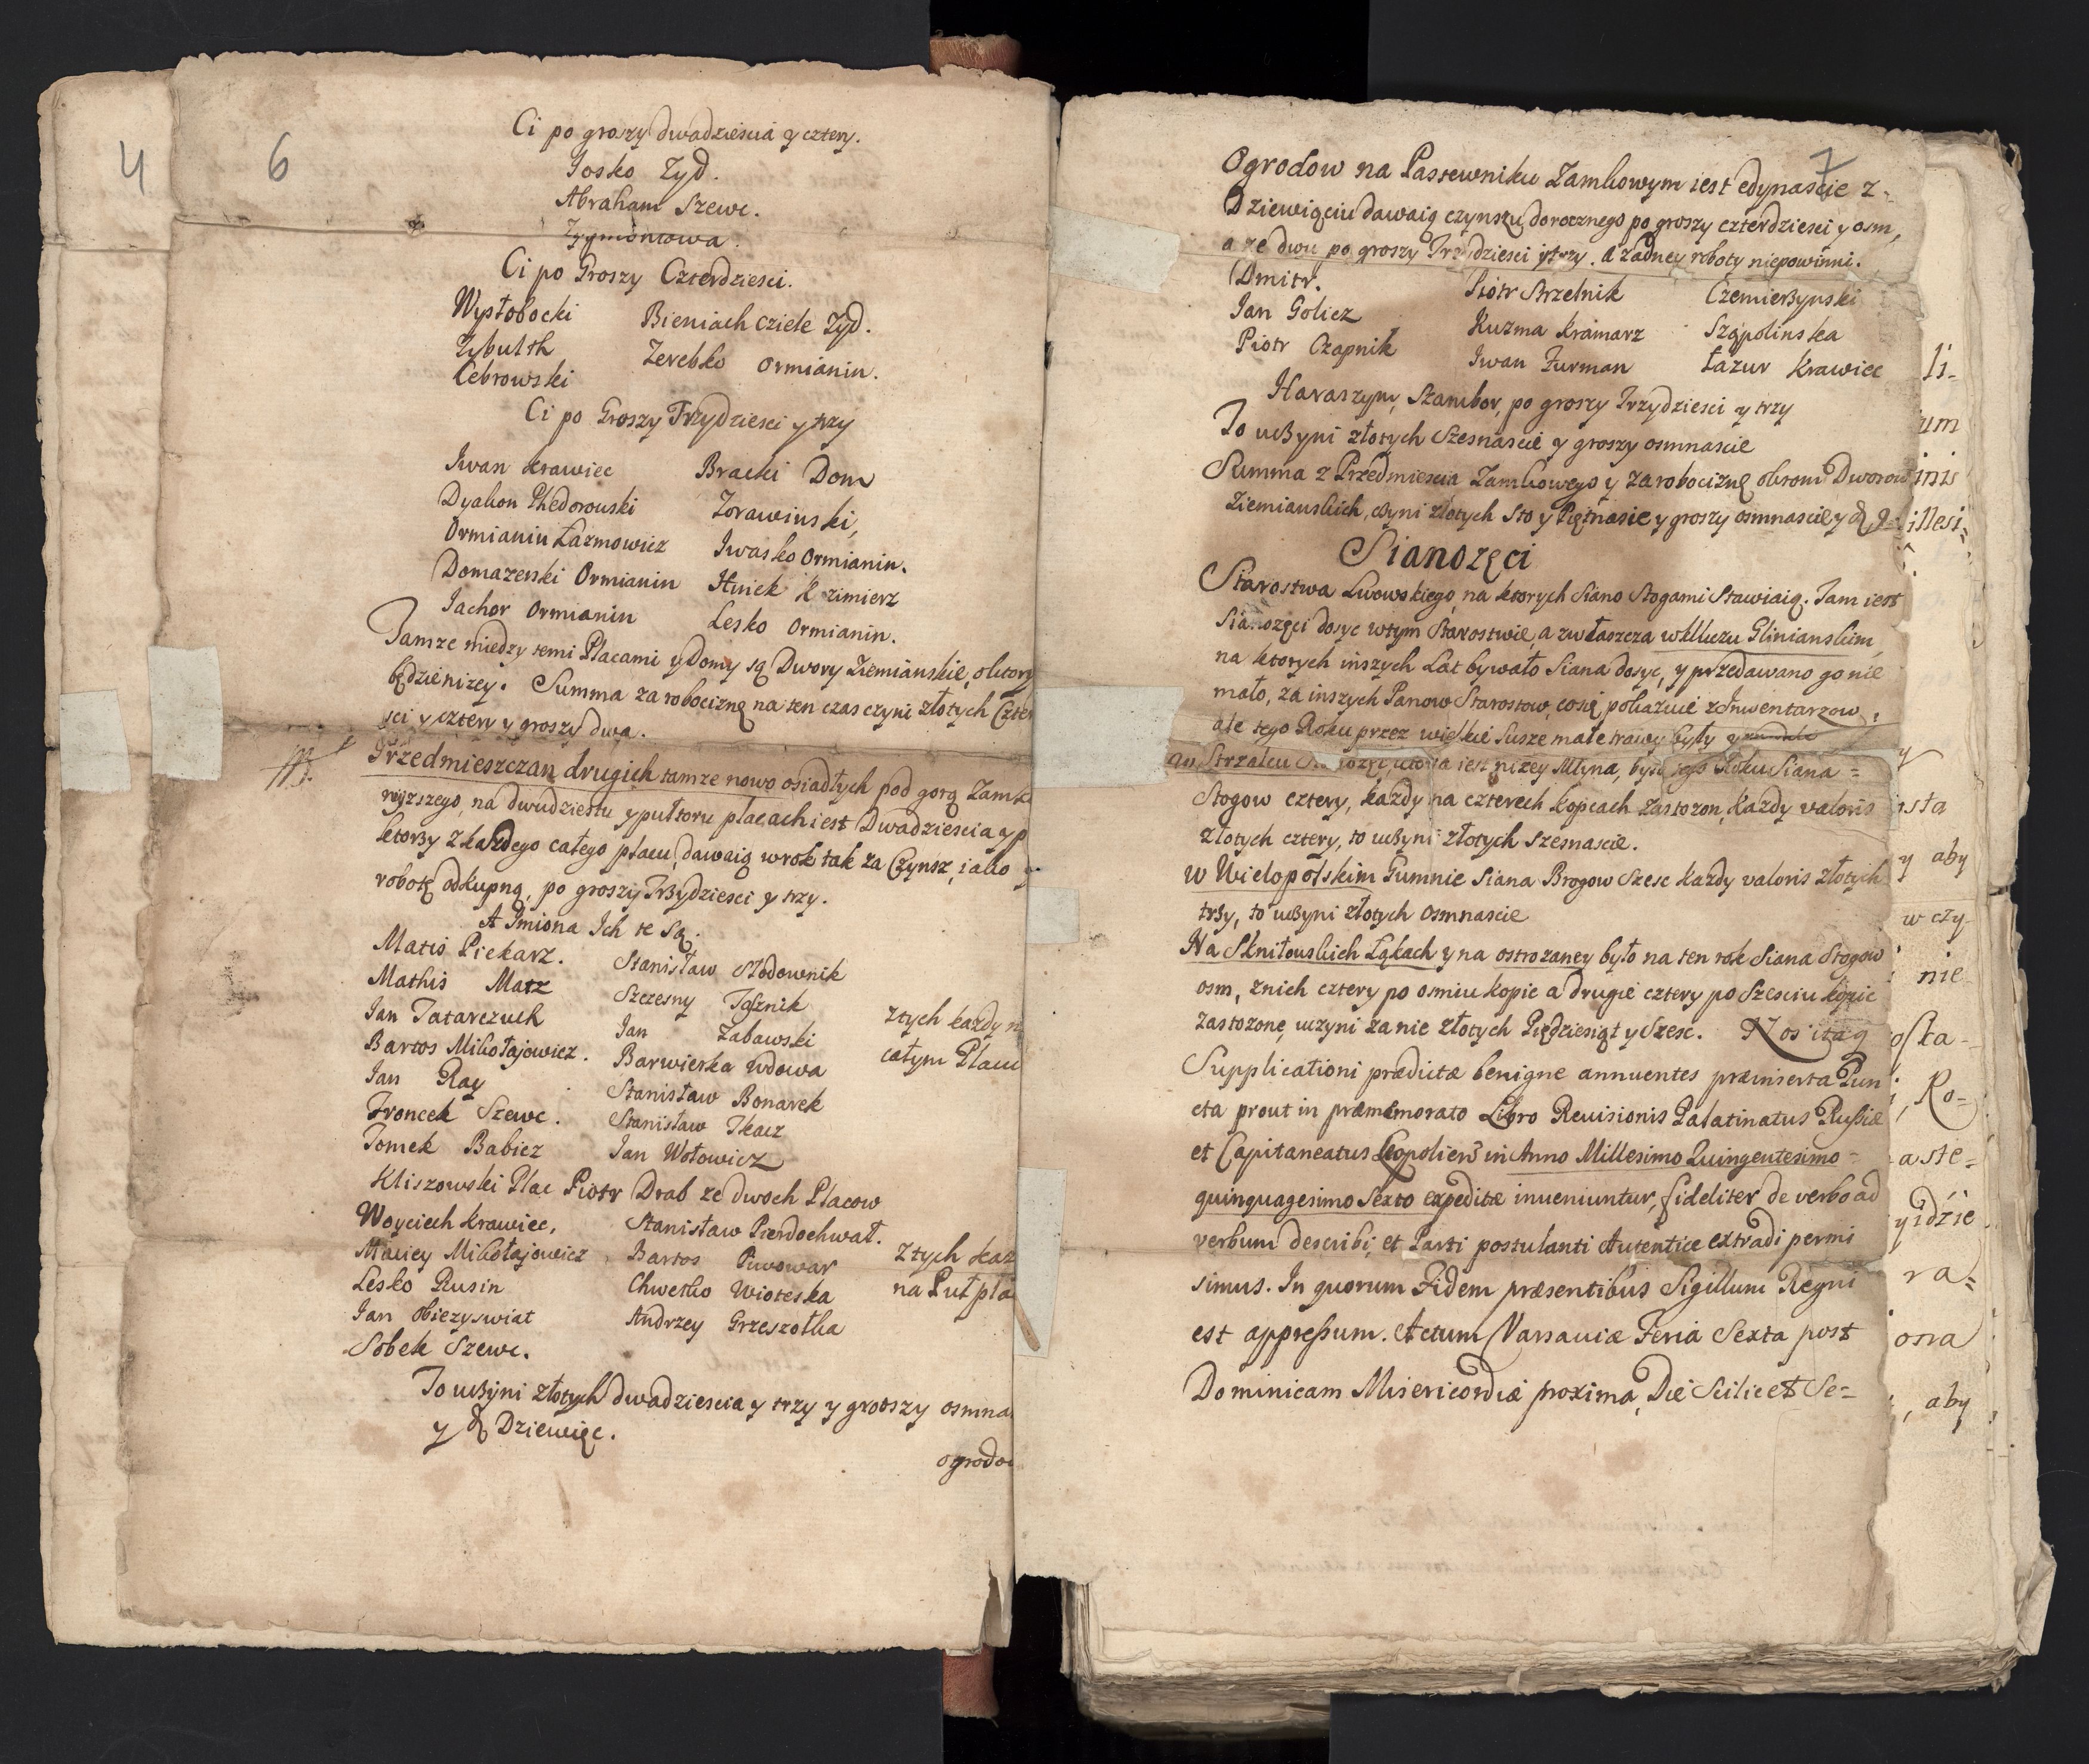 4
6
Ci po groszy dwadziescia y cztery.
Josko Zyd.
Abraham Szewc.
Zygmontowa.
Ci po Groszy Czterdziesci.
Wysłobocki Bieniach Cziele Zyd.
Zybulth Zerebko Ormianin.
Cebrowski
Ci po Groszy Trzydziesci y trzy
Iwan Krawiec Bracki Dom
Dyakon Phedorowski Zorawinski,
Ormianin Łazmowicz Iwasko Ormianin.
Domazerski Ormianin Hniek K zimierz
Jachor Ormianin Lesko Ormianin.
Tamze między temi Placami y Domy są Dwory Ziemianskie, o ktory
będzie nizey. Summa za robociznę na ten czas czyni złotych Czter
sci y cztery y groszy dwa.
Przedmieszczan drugich tamze nowo osiadłych pod gorą Zamk
wyzszego, na dwudziestu y pułtoru placach iest Dwadziescia y p
ktorzy z kazdego całego placu, dawaią w rok tak za Czynsz, iako y
robotę odkupną, po groszy Trzydziesci y trzy.
A Imiona Ich te Są.
Matis Piekarz. Stanisław Słodownik
Mathis Matz Szczesny
Jan Tatarczuch Jan Zabawski ztych kazdy n
Bartos Mikołajowicz. Barwierka Wdowa całym Placu
Jan Ray Stanisław Bonarek
Froncek Szewc. Stanisław Tkacz
Tomek Babicz Jan Wołowicz
Kliszowski Plac Piotr Drab ze dwoch Placow
Woyciech Krawiec, Stanisław Pierdochwał.
Maciey Mikołajowicz Bartos Piwowar Ztych kaz
Lesko Rusin Chwetko Wioteska na Puł pla
Jan Obiezyswiat Andrzey Grzeszotka
Sobek Szewc.
To uczyni złotych dwadziescia y trzy y groszy osmna
y Dziewięc.
ogrodo
7
Ogrodow na Pastewniku Zamkowym iest edynascie z-
Dziewięciu dawaią czynszu dorocznego po groszy czterdziesci y osm,
a ze dwu po groszy Trzydziesci y trzy. a zadney roboty niepowinni.
Dmitr. Piotr Strzelnik Czemierzynski
Jan Golicz Kuzma Kramarz Sząpolinska
Piotr Czapnik Iwan Furman Łazur Krawiec
Haraszym, Szambor, po groszy Trzydziesci y trzy
To uczyni złotych Szesnascie y groszy osmnascie
Summa z Przedmiescia Zamkowego y za robociznę okrom Dworow
Ziemianskich, czyni złotych Sto y Piętnascie y groszy osmnascie y 9.
Sianozęci
Starostwa Lwowskiego, na ktorych Siano Stogami Stawiaią. Tam iest
Sianozęci dosyc wtym Starostwie, a zwłaszcza w kluczu Glinianskim,
na ktorych inszych Lat bywało Siana dosyc, y przedawano go nie
mało, za inszych Panow Starostow, co się pokazuie z Inwentarzow,
ale tego Roku przez wielkie Susze małe trawy były
w Strzalcu ktora iest nizey Młyna, było tego Roku Siana =
Stogow cztery, kazdy na czterech kopcach zastozon, Kazdy valoris
złotych cztery, to uczyni złotych Szesnascie.
w Wielopolskim Gumnie Siana Brogow Szesc kazdy valoris złotych
trzy, to uczyni złotych Osmnascie
Na Skniłouskich Łąkach y na ostrozaney było na ten rok Siana Stogow
osm, znich cztery po osmiu kopic a drugie cztery po Szesciu kopic
zastozone, uczyni za nie złotych Pięcdziesiąt y Szesc. Nos itaq
Supplicationi prædictæ benigne annuentes præinserta Pun
cta prout in præmemorato Libro Reuisionis Palatinatus Russiæ
et Capitaneatus Leopoliens in Anno Millesimo Quingentesimo =
quinquagesimo Sexto expeditæ inueniuntur, fideliter de verbo ad
verbum describi, et Parti postulanti Autentice extradi permi
simus. In quorum Fidem præsentibus Sigillum Regni
est appressum. Actum Varsauiæ Feria Sexta post
Dominicam Misericordiæ proxima, Die Scilicet Se=
li-
um
inis
illesi=
y
sta
y aby
w czy
nie
osta-
, Ro=
aste=
yidzie
ra=
osta
, aby